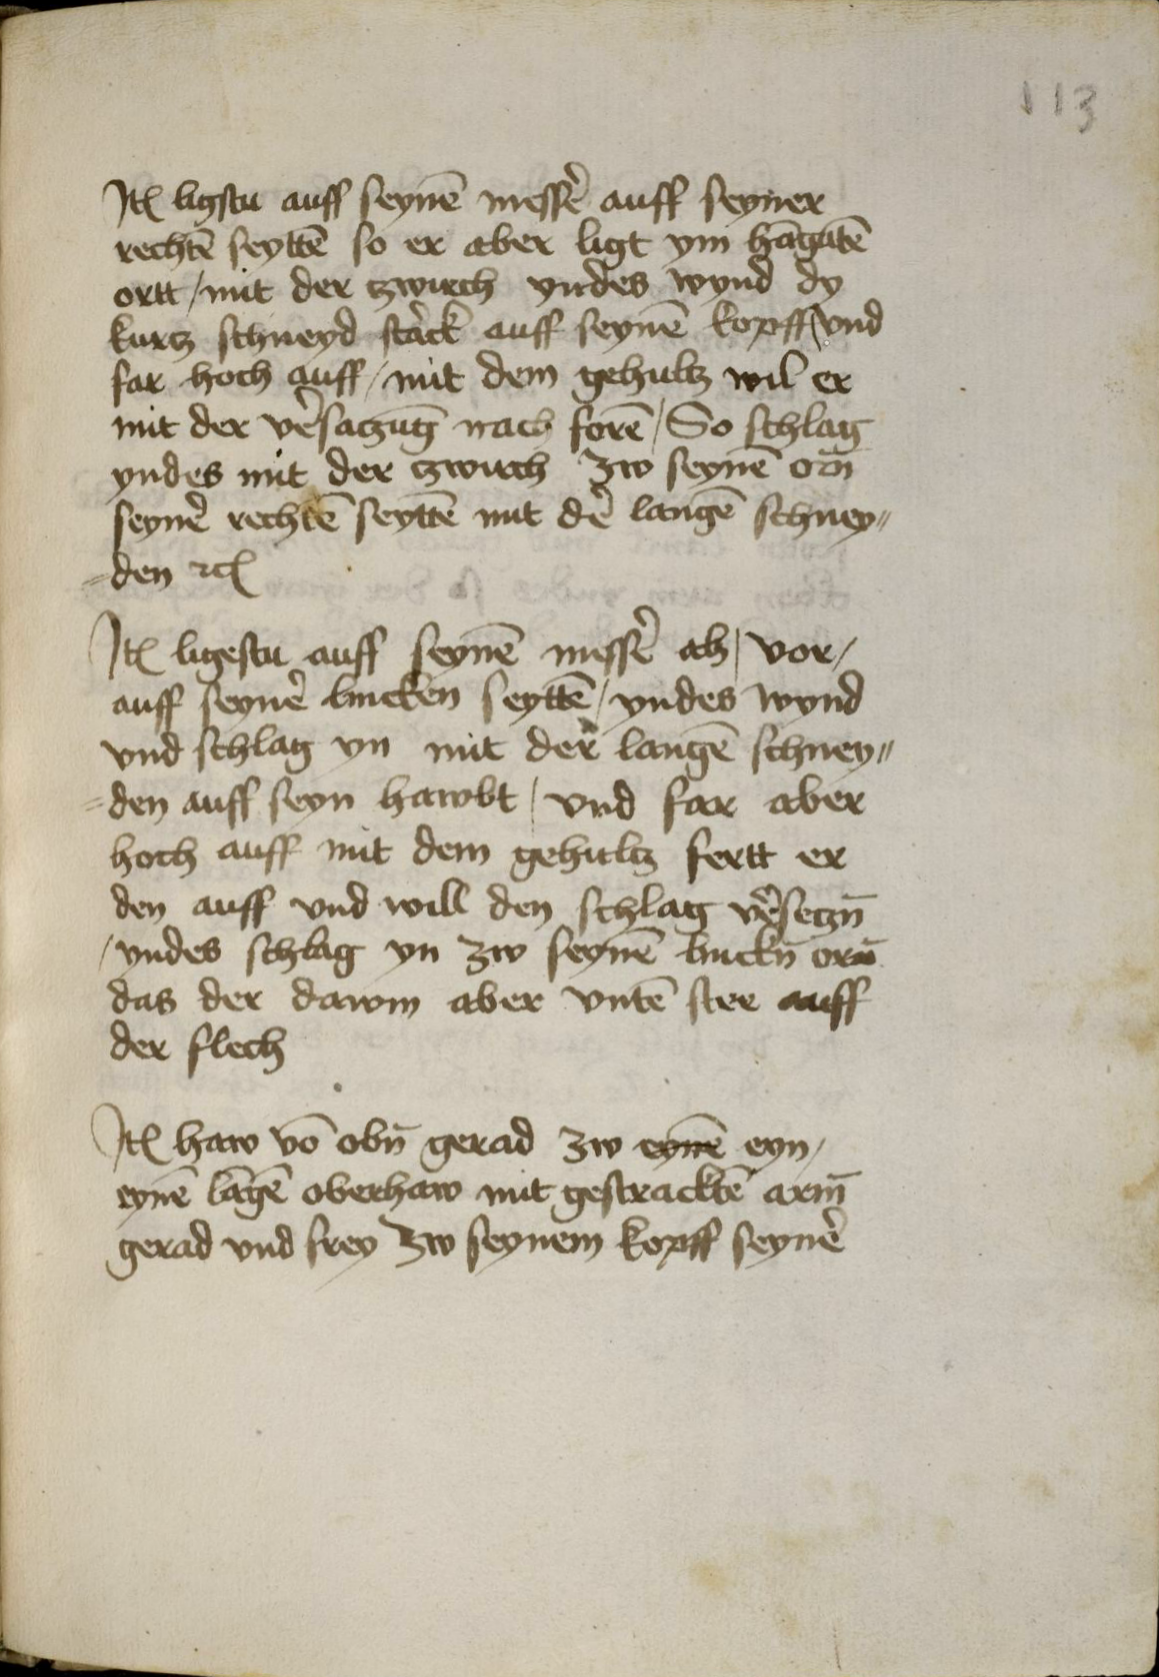 113
Jtꝫ ligstu auff seynē messer̄ auff seyner
rechtē seyttē so er aber ligt ym hāgātē
ortt / mit der zwirch yndes wynd dy
kurtz schneyd starck auff seynē kopff / vnd
far hoch auff / mit dem gehultz wil er
mit der v̄satzūg nach forē / So schlag
yndes mit der zwirch zw seynē orn̄
seyner̄ rechtē seyttē mit der̄ langē schney〃
〃den ꝛcꝫ
Jtꝫ ligestu auff seynē messer̄ ab / vor /
auff seyner̄ lincken seyttē / yndes wynd
vnd schlag yn mit der langē schney〃
〃den auff seyn hawbt / vnd far aber
hoch auff mit dem gehultz fertt er
den auff vnd will den schlag v̄setzn̄
/ yndes schlag yn zw seynē linckn̄ orn̄
das der dawm aber vntē stee auff
der flech
Jtꝫ haw vō obn̄ gerad zw eynē eyn /
eynē lāgē oberhaw mit gestracktē arm̄
gerad vnd frey zw seynem kopff seyner̄